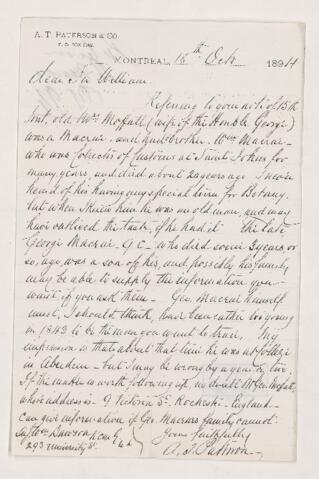 A. T. PATERSON & CO.
P. O. BOX
MONTREAL, 16th Oct. 1894
Dear Sir William.
Referring to your note of 15th
Inst. old Mrs Moffatt (wife of the Honble George)
was a Macrae. and her brother. Wm Macrae -
who was Collector of Customs at Saint Johns for
many years and died about 20 years ago. I never
heard of his having any special turn for Botany.
but when I knew him he was an old man, and may
have outlived the taste, if he had it. The late
George Macrae. Q C - who died some 3 years or
so, ago, was a son of his, and possibly his family
may be able to supply the information you
want if you ask them - Geo. Macrae himself
must, I should think, have been rather too young
in 1843 to be the man you want to trace. My
impression is that about that time he was at College
in Aberdeen - but I may be wrong by a year or two.
If the matter is worth following up, no doubt Mr Geo. Moffatt,
whose address is - 9 Victoria St. Rochester - England -
can give information if Geo. Macrae's family cannot.
Yours faithfully
Sir Wm Dawson K.C.M.G
293 University St.
A. T. Paterson -